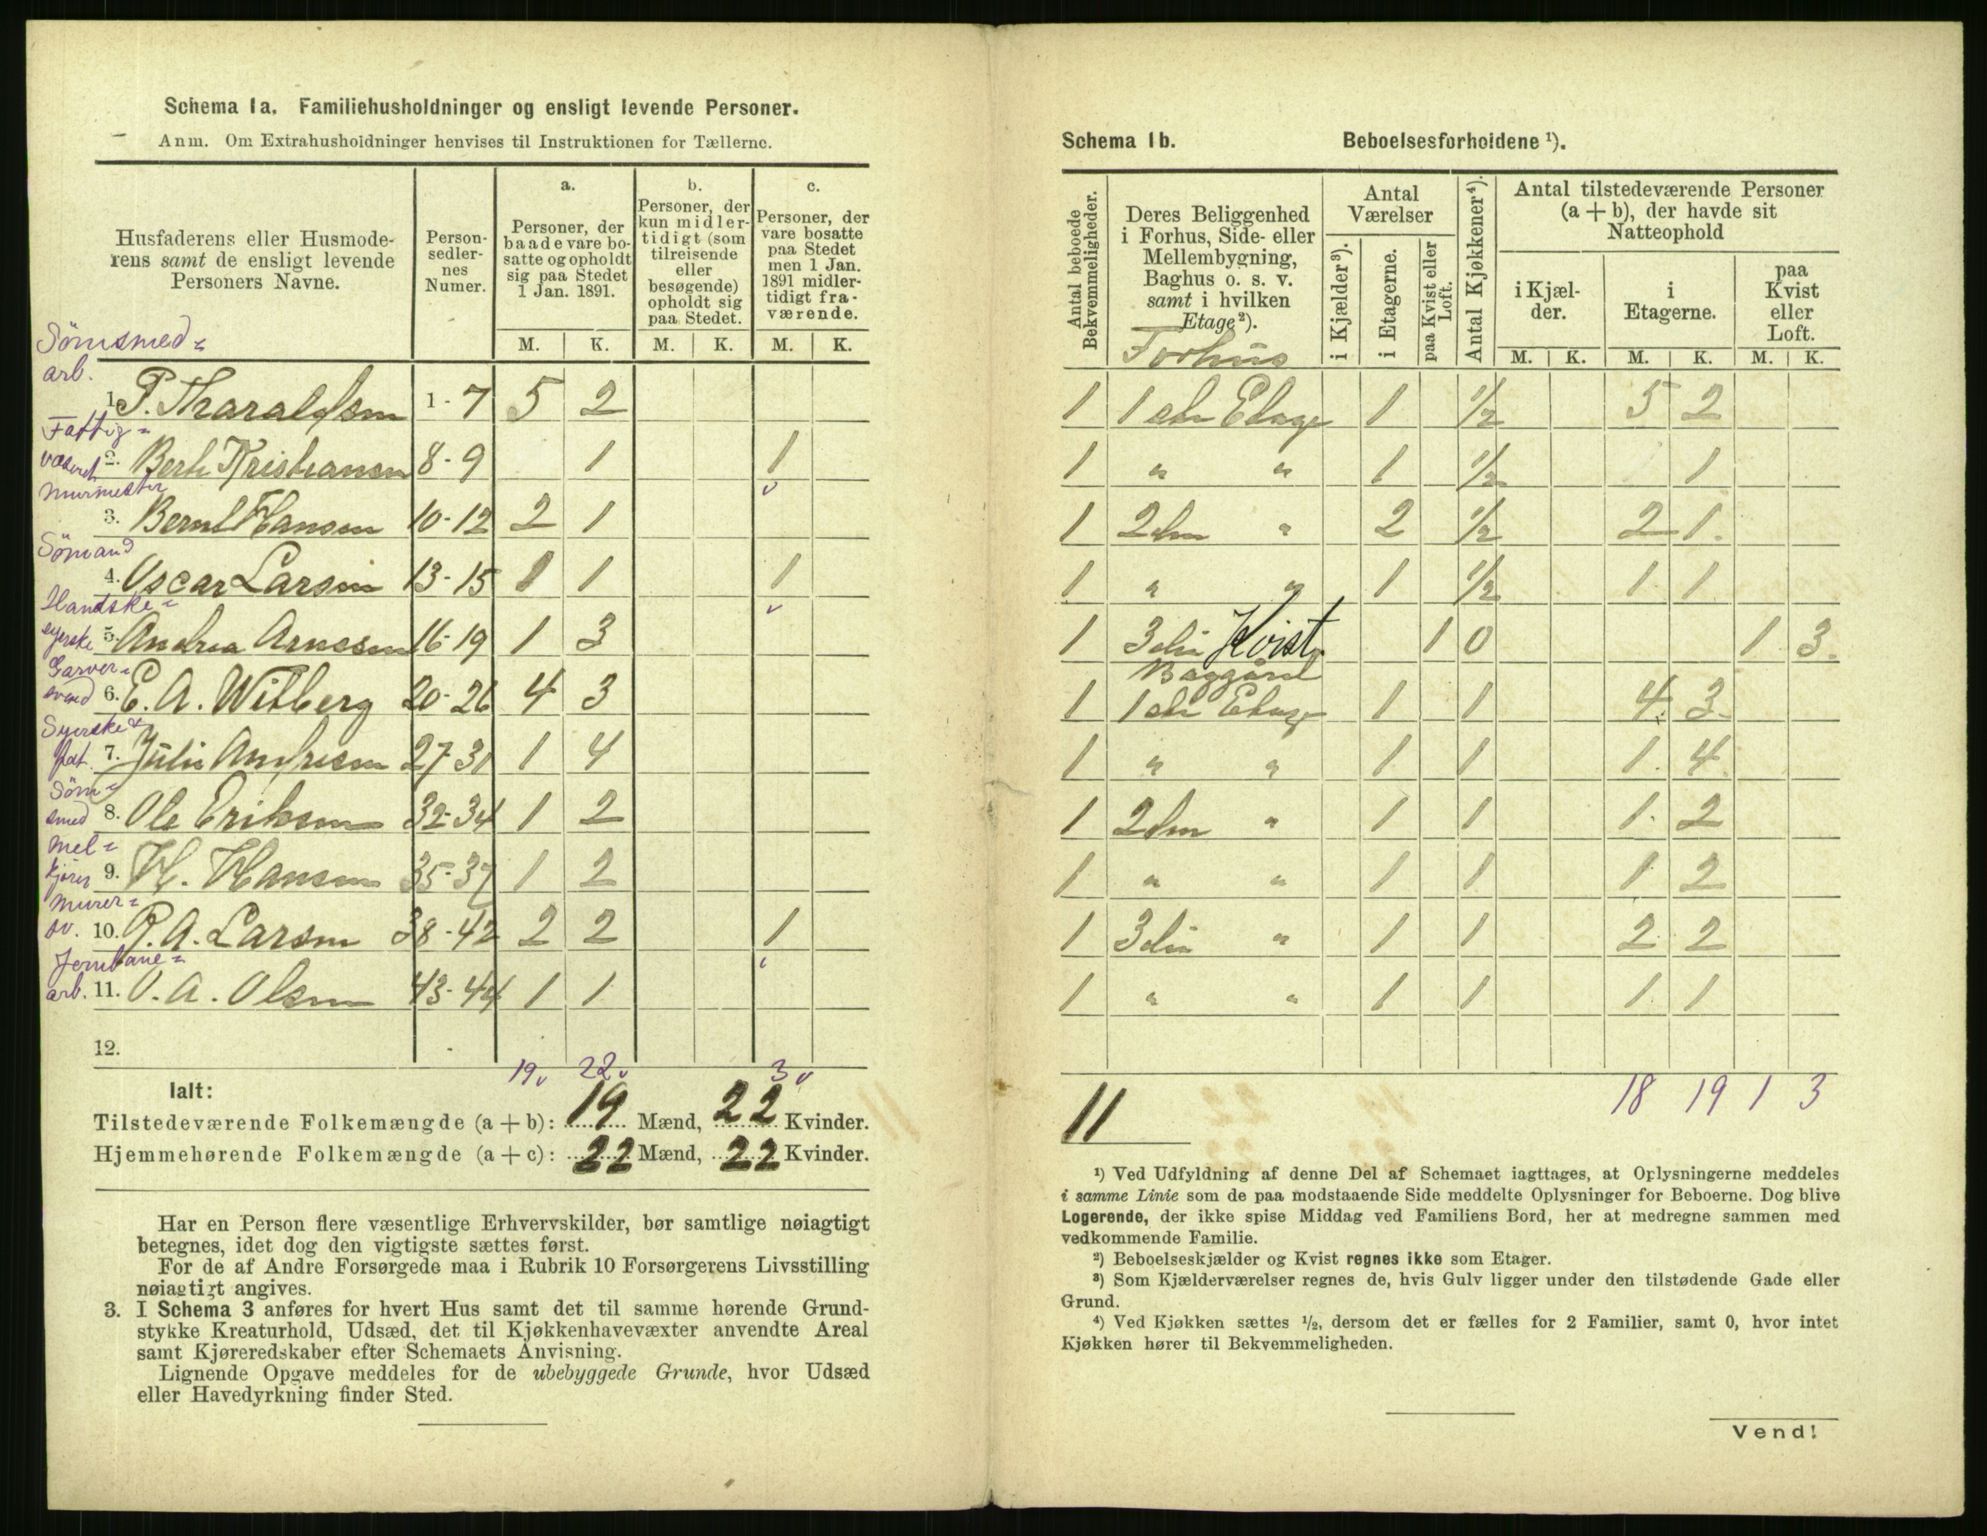 Schema 1a. Familiehusholdninger og ensligt levende Personer.
Anm. Om Extrahusholdninger henvises til Instruktionen for Tællerne.
Husfaderens eller Husmoderens samt de ensligt levende Personers Navne.
Personsedlernes Numer.
a. Personer, der baade vare bosatte og opholdt sig paa Stedet 1 Jan. 1891.
b. Personer, der kun midlertidigt (som tilreisende eller besøgende) opholdt sig paa Stedet.
c. Personer, der vare bosatte paa Stedet men 1 Jan. 1891 midlertidigt fraværende.
M. K. M. K. M. K.
Sömsmed=
arb.
1. P. Tharaldsen 1-7 5 2
Fattig=
væsenet 2. Berth Kristiansen 8-9 1 1
Murmester
3. Bernt Hansen 10-12 2 1
Sömand
4. Oscar Larsen 13-15 1 1 1
Handske=
syerske 5. Andrea Arnesen 16-19 1 3
Garver=
svend 6. E. A. Witberg 20-26 4 3
Syerske
fat. 7. Julie Andresen 27-31 1 4
Söm=
smed 8. Ole Eriksen 32-34 1 2
Mel=
kjörer 9. H. Hansen 35-37 1 2
Murer=
sv. 10. P. A. Larsen 38-42 2 2 1
Jernbane=
arb. 11. O. A. Olsen 43-44 1 1
12.
19 22 3
Ialt:
Tilstedeværende Folkemængde (a + b): 19 Mænd, 22 Kvinder.
Hjemmehørende Folkemængde (a + c): 22 Mænd, 22 Kvinder.
Har en Person flere væsentlige Erhvervskilder, bør samtlige nøiagtigt
betegnes, idet dog den vigtigste sættes først.
For de af Andre Forsørgede maa i Rubrik 10 Forsørgerens Livsstilling
nøiagtigt angives.
3. I Schema 3 anføres for hvert Hus samt det til samme hørende Grund-
stykke Kreaturhold, Udsæd, det til Kjøkkenhavevæxter anvendte Areal
samt Kjøreredskaber efter Schemaets Anvisning.
Lignende Opgave meddeles for de ubebyggede Grunde, hvor Udsæd
eller Havedyrkning finder Sted.
Schema 1b. Beboelsesforholdene ¹).
Antal beboede Bekvemmeligheder.
Deres Beliggenhed i Forhus, Side- eller Mellembygning, Baghus o. s. v. samt i hvilken Etage²).
Antal Værelser
i Kjælder³).
i Etagerne.
paa Kvist eller Loft.
Antal Kjøkkener⁴).
Antal tilstedeværende Personer (a + b), der havde sit Natteophold
i Kjælder.
i Etagerne.
paa Kvist eller Loft.
M. K. M. K. M. K.
Forhus
1 1ste Etage 1 ½ 5 2
1 " " 1 ½ 1
1 2den " 2 ½ 2 1
1 " " 1 ½ 1 1
1 3die Kvist 1 0 1 3
Baggård
1 1ste Etage 1 1 4 3
1 " " 1 1 1 4
1 2den " 1 1 1 2
1 " " 1 1 1 2
1 3die " 1 1 2 2
1 " " 1 1 1 1
11 18 19 1 3
¹) Ved Udfyldning af denne Del af Schemaet iagttages, at Oplysningerne meddeles
i samme Linie som de paa modstaaende Side meddelte Oplysninger for Beboerne. Dog blive
Logerende, der ikke spise Middag ved Familiens Bord, her at medregne sammen med
vedkommende Familie.
²) Beboelseskjælder og Kvist regnes ikke som Etager.
³) Som Kjælderværelser regnes de, hvis Gulv ligger under den tilstødende Gade eller
Grund.
⁴) Ved Kjøkken sættes ½, dersom det er fælles for 2 Familier, samt 0, hvor intet
Kjøkken hører til Bekvemmeligheden.
Vend!